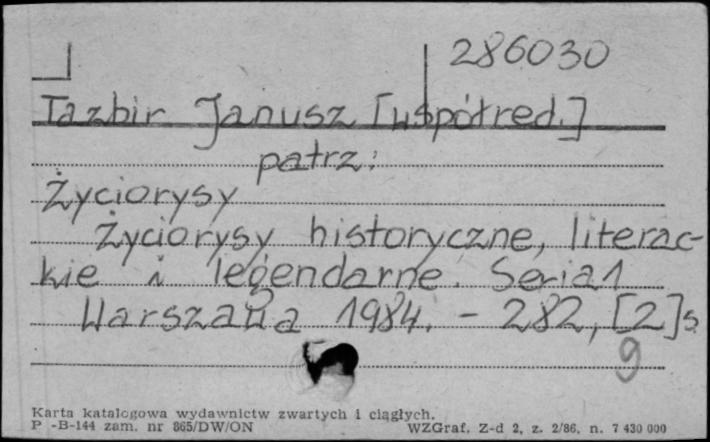 286030
Tazbir Janusz [współred.]
patrz:
Życiorysy
Życiorysy historyczne, literac-
kie i legendarne. Seria 1
Warszawa 1984. - 282, [2] s
9
Karta katalogowa wydawnictw zwartych i ciągłych.
P -B-144 zam. nr 865/DW/ON WZGraf. Z-d 2, z. 2/86, n. 7 430 000